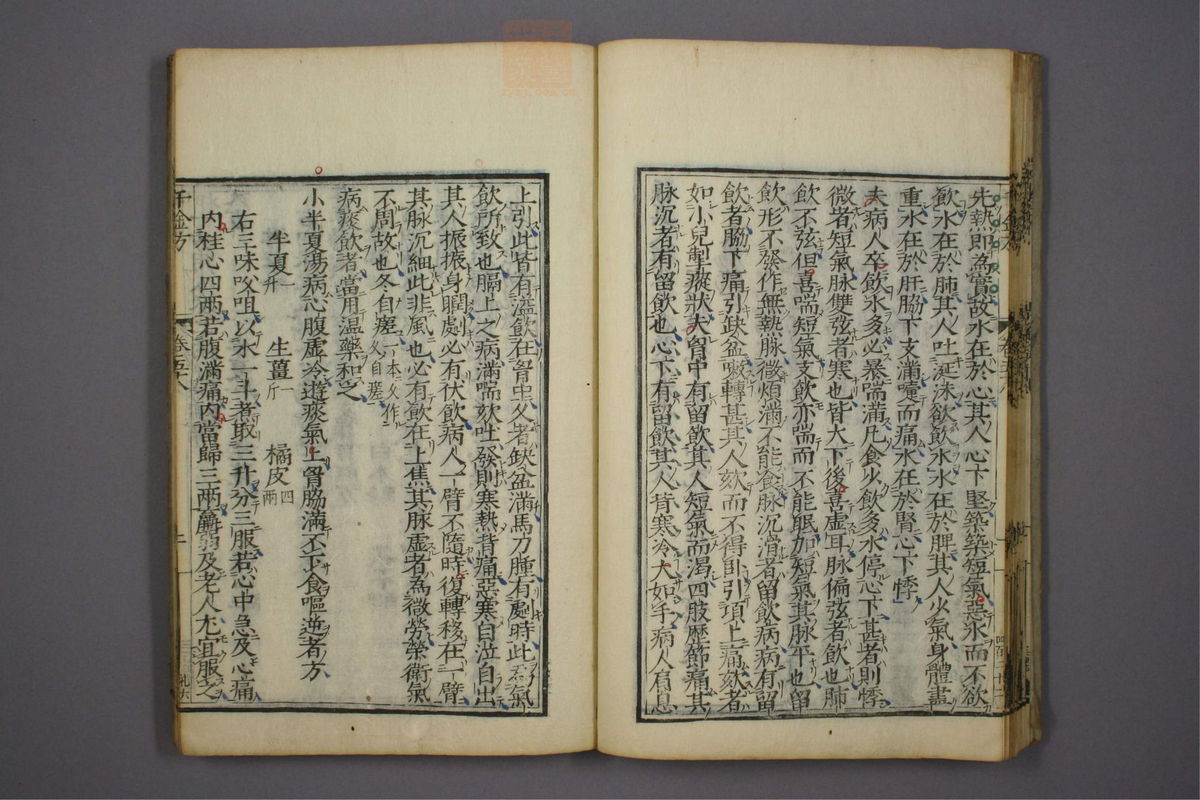 先熱即為實故水在於心其人心下堅築築短氣惡水而不欲
飲水在於肺其人吐涎沫欲飲水水在於脾其人火氣身體盡
重水在於肝脇下支滿嚏而痛水在於腎心下悸
夫病人卒飲水多必暴喘滿凡食火飲多水停心下甚者則悸
微者短氣脉雙弦者寒也皆大下後喜虛耳脉偏弦者飲也肺
飲不弦但喜喘短氣支飲亦喘而不能眠加短氣其脉平也留
飲形不發作無熱脉微煩滿不能食脉沉滑者留飲病病有留
飲者脇下痛引缺盆嗽轉甚其人欬而不得卧引項上痛欬者
如小兒掣瘲狀夫胷中有留飲其人短氣而渴四肢歷節痛其
脉沉者有留飲也心下有留飲其人背寒冷大如手病人有息
上引此皆有溢飲在胷中久者缺盆滿馬刀腫有處時此為氣
飲所致也膈上之病滿喘欬吐發則寒熱背痛惡寒目泣自出
其人振振身瞤則必有伏飲病人一臂不隨時復轉移在一臂
其脉沉細此非風也必有飲在上焦其脉虛者為微勞榮衛氣
不周故也冬自瘥一本久作久自瘥
病痰飲者當用温藥和之
小半夏湯病心腹虛冷遊痰氣上胷脇滿不下食嘔逆者方
半夏一升 生薑一斤 橘皮四兩
右三味㕮咀以水一斗煮取三升分三服若心中急及心痛
内桂心四兩若腹滿痛内當歸三兩羸弱及老人尤宜服之
千金方 卷五八